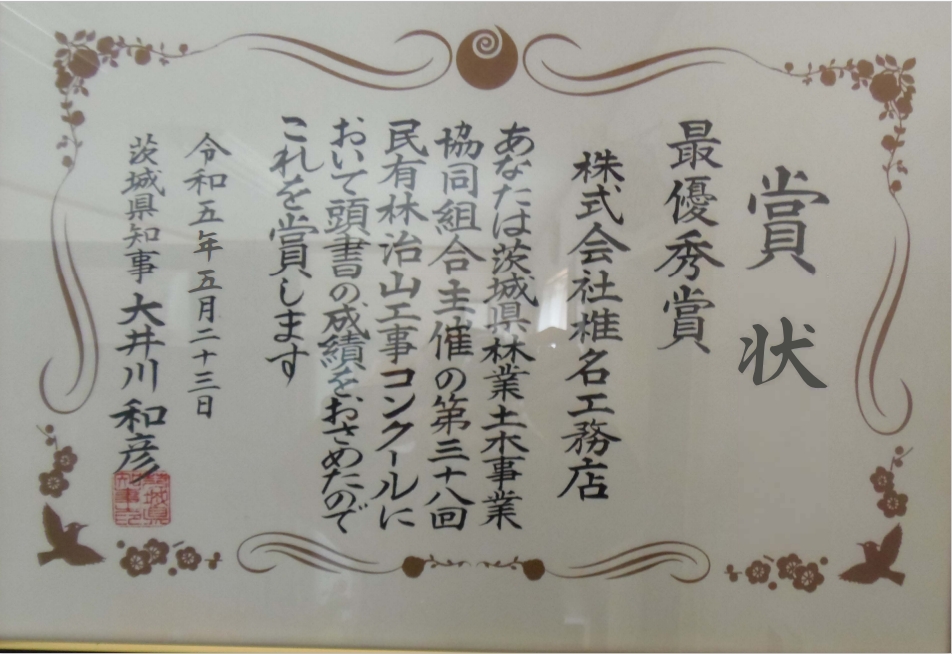 賞状
最優秀賞
株式会社椎名工務店
あなたは茨城県林業土木事業
協同組合主催の第三十八回
民有林治山工事コンクールに
おいて頭書の成績をおさめたので
これを賞します
令和五年五月二十三日
茨城県知事 大井川 和彦
茨城県知事之印